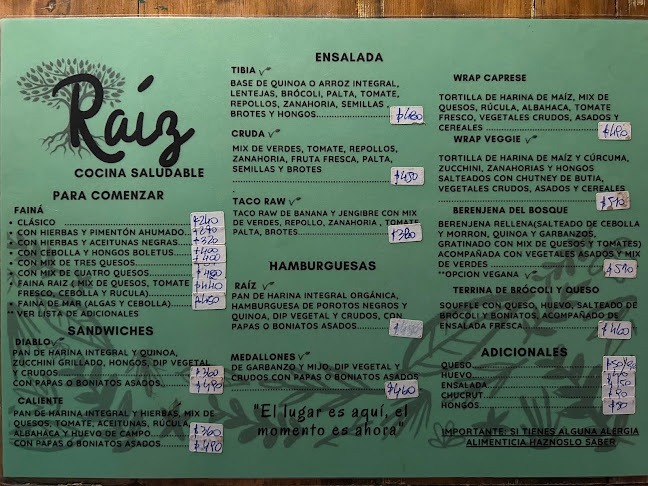 Raíz
COCINA SALUDABLE
PARA COMENZAR
FAINÁ
• CLÁSICO $240
• CON HIERBAS Y PIMENTÓN AHUMADO..
• CON HIERBAS Y ACEITUNAS NEGRAS... $320
• CON CEBOLLA Y HONGOS BOLETUS... $400
• CON MIX DE TRES QUESOS... $400
• CON MIX DE CUATRO QUESOS... $480
• FAINA RAIZ ( MIX DE QUESOS, TOMATE $440
FRESCO, CEBOLLA Y RÚCULA)...
• FAINA DE MAR (ALGAS Y CEBOLLA)... $450
** VER LISTA DE ADICIONALES
SANDWICHES
DIABLO ✓
PAN DE HARINA INTEGRAL Y QUINOA,
ZUCCHINI GRILLADO, HONGOS, DIP VEGETAL
Y CRUDOS... $360
CON PAPAS O BONIATOS ASADOS.. $490
CALIENTE
PAN DE HARINA INTEGRAL Y HIERBAS, MIX DE
QUESOS, TOMATE, ACEITUNAS, RÚCULA,
ALBAHACA Y HUEVO DE CAMPO... $360
CON PAPAS O BONIATOS ASADOS... $490
ENSALADA
TIBIA ✓
BASE DE QUINOA O ARROZ INTEGRAL,
LENTEJAS, BRÓCOLI, PALTA, TOMATE,
REPOLLOS, ZANAHORIA, SEMILLAS ,
BROTES Y HONGOS... $480
CRUDA ✓
MIX DE VERDES, TOMATE, REPOLLOS,
ZANAHORIA, FRUTA FRESCA, PALTA,
SEMILLAS Y BROTES $450
TACO RAW ✓
TACO RAW DE BANANA Y JENGIBRE CON MIX
DE VERDES, REPOLLO, ZANAHORIA , TOMATE,
PALTA, BROTES... $380
HAMBURGUESAS
RAÍZ ✓
PAN DE HARINA INTEGRAL ORGÁNICA,
HAMBURGUESA DE POROTOS NEGROS Y
QUINOA, DIP VEGETAL Y CRUDOS, CON
PAPAS O BONIATOS ASADOS...
MEDALLONES ✓
DE GARBANZO Y MIJO, DIP VEGETAL Y
CRUDOS CON PAPAS O BONIATOS ASADOS
$460
"El lugar es aquí, el
momento es ahora"
WRAP CAPRESE
TORTILLA DE HARINA DE MAÍZ, MIX DE
QUESOS, RÚCULA, ALBAHACA, TOMATE
FRESCO, VEGETALES CRUDOS, ASADOS Y
CEREALES ... $490
WRAP VEGGIE ✓
TORTILLA DE HARINA DE MAÍZ Y CÚRCUMA,
ZUCCHINI, ZANAHORIAS Y HONGOS
SALTEADOS CON CHUTNEY DE BUTIA,
VEGETALES CRUDOS, ASADOS Y CEREALES
$510
BERENJENA DEL BOSQUE
BERENJENA RELLENA(SALTEADO DE CEBOLLA
Y MORRON, QUINOA Y GARBANZOS,
GRATINADO CON MIX DE QUESOS Y TOMATES)
ACOMPAÑADA CON VEGETALES ASADOS Y MIX
DE VERDES ...
**OPCION VEGANA ✓ $510
TERRINA DE BRÓCOLI Y QUESO
SOUFFLE CON QUESO, HUEVO, SALTEADO DE
BRÓCOLI Y BONIATOS, ACOMPAÑADO DE
ENSALADA FRESCA... $460
ADICIONALES
QUESO...
HUEVO...
ENSALADA... $150
CHUCRUT... $90
HONGOS... $80
IMPORTANTE: SI TIENES ALGUNA ALERGIA
ALIMENTICIA HAZNOSLO SABER